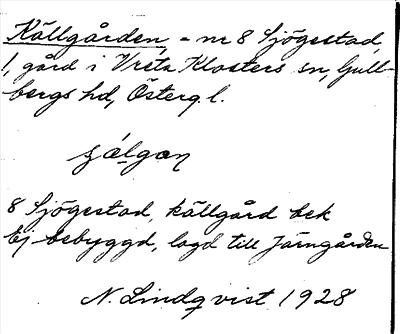 Källgården, = nr 8 Sjögestad,
1, gård i Vreta Klosters sn, Gull-
bergs hd, Österg. l.
8 Sjögestad, källgård bek
Ej bebyggd, lagd till Järngården
N. Lindqvist 1928